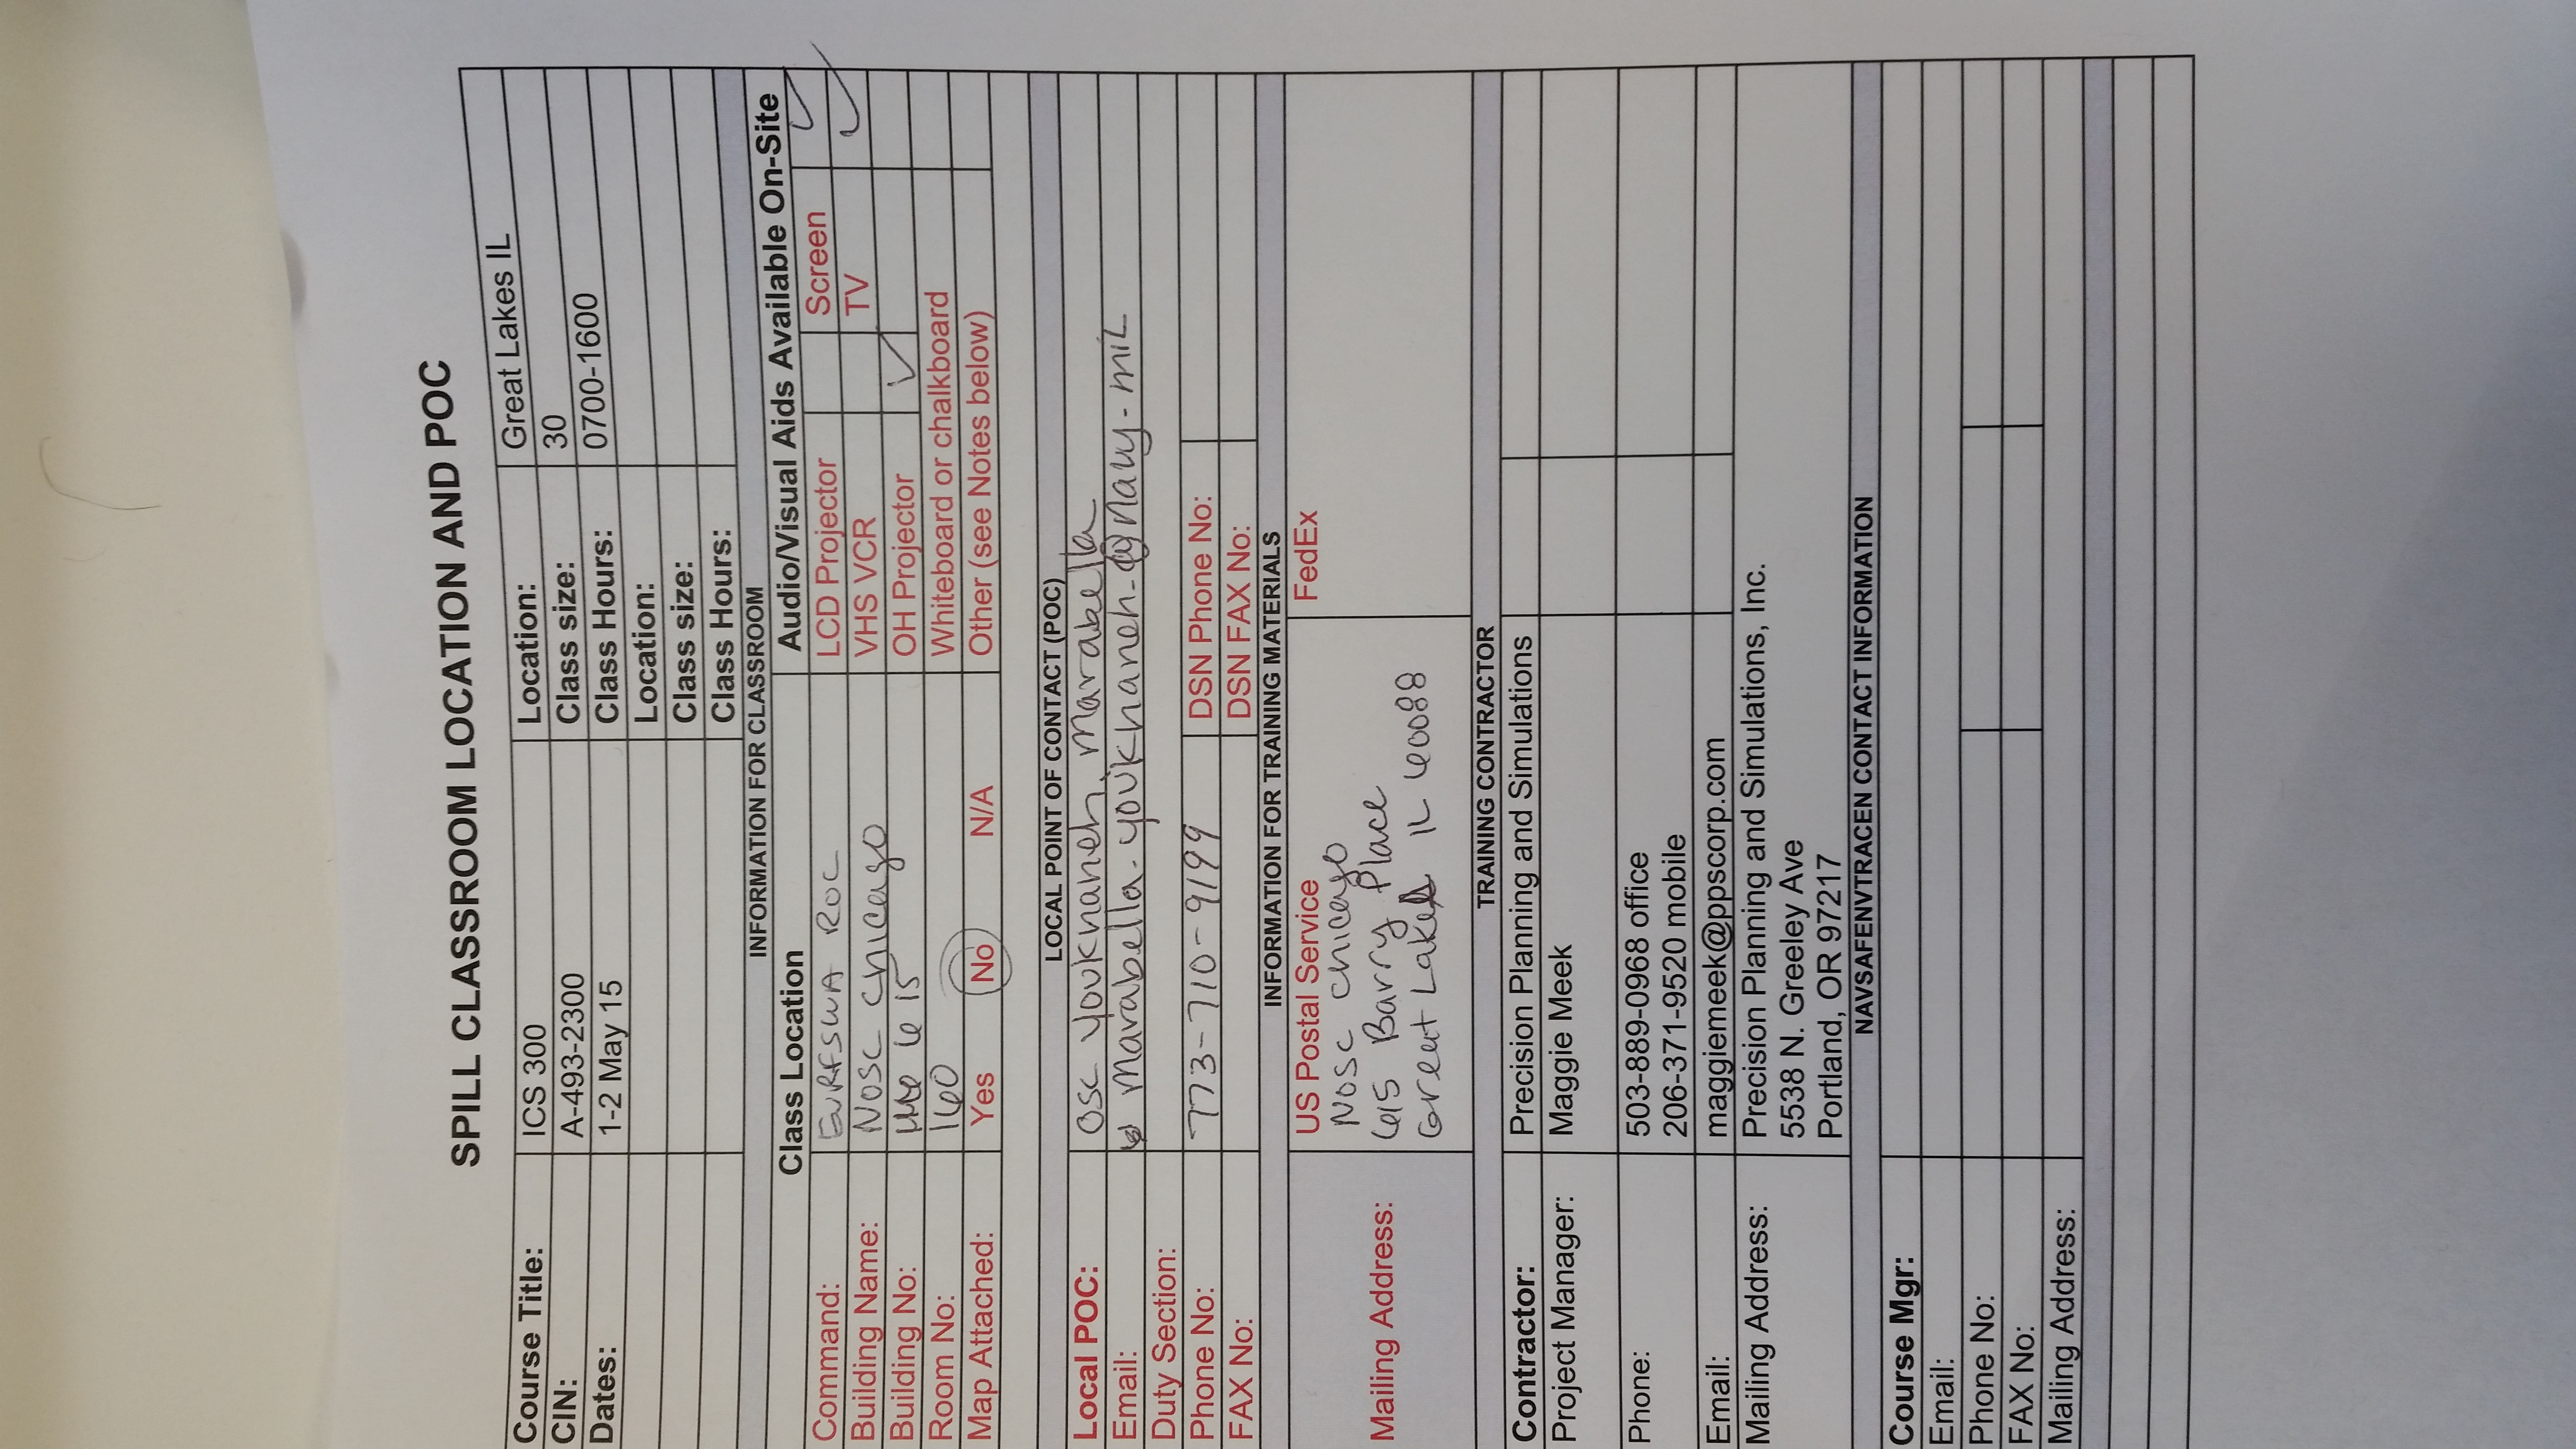 SPILL CLASSROOM LOCATION AND POC
Course Title: ICS 300 Location: Great Lakes IL
CIN: A-493-2300 Class size: 30
Dates: 1-2 May 15 Class Hours: 0700-1600
Location:
Class size:
Class Hours:
INFORMATION FOR CLASSROOM
Class Location Audio/Visual Aids Available On-Site
Command: EURFSWA ROC LCD Projector Screen ✓
Building Name: NOSC Chicago VHS VCR TV ✓
Building No: 615 OH Projector ✓
Room No: 160 Whiteboard or chalkboard
Map Attached: Yes No N/A Other (see Notes below)
LOCAL POINT OF CONTACT (POC)
Local POC: OSC Youkhaneh, Marabella
Email: Marabella.youkhaneh.@navy.mil
Duty Section:
Phone No: 773-710-9199 DSN Phone No:
FAX No: DSN FAX No:
INFORMATION FOR TRAINING MATERIALS
Mailing Address: US Postal Service FedEx
NOSC Chicago
615 Barry Place
Great Lakes IL 60088
TRAINING CONTRACTOR
Contractor: Precision Planning and Simulations
Project Manager: Maggie Meek
Phone: 503-889-0968 office
206-371-9520 mobile
Email: maggiemeek@ppscorp.com
Mailing Address: Precision Planning and Simulations, Inc.
5538 N. Greeley Ave
Portland, OR 97217
NAVSAFENVTRACEN CONTACT INFORMATION
Course Mgr:
Email:
Phone No:
FAX No:
Mailing Address: